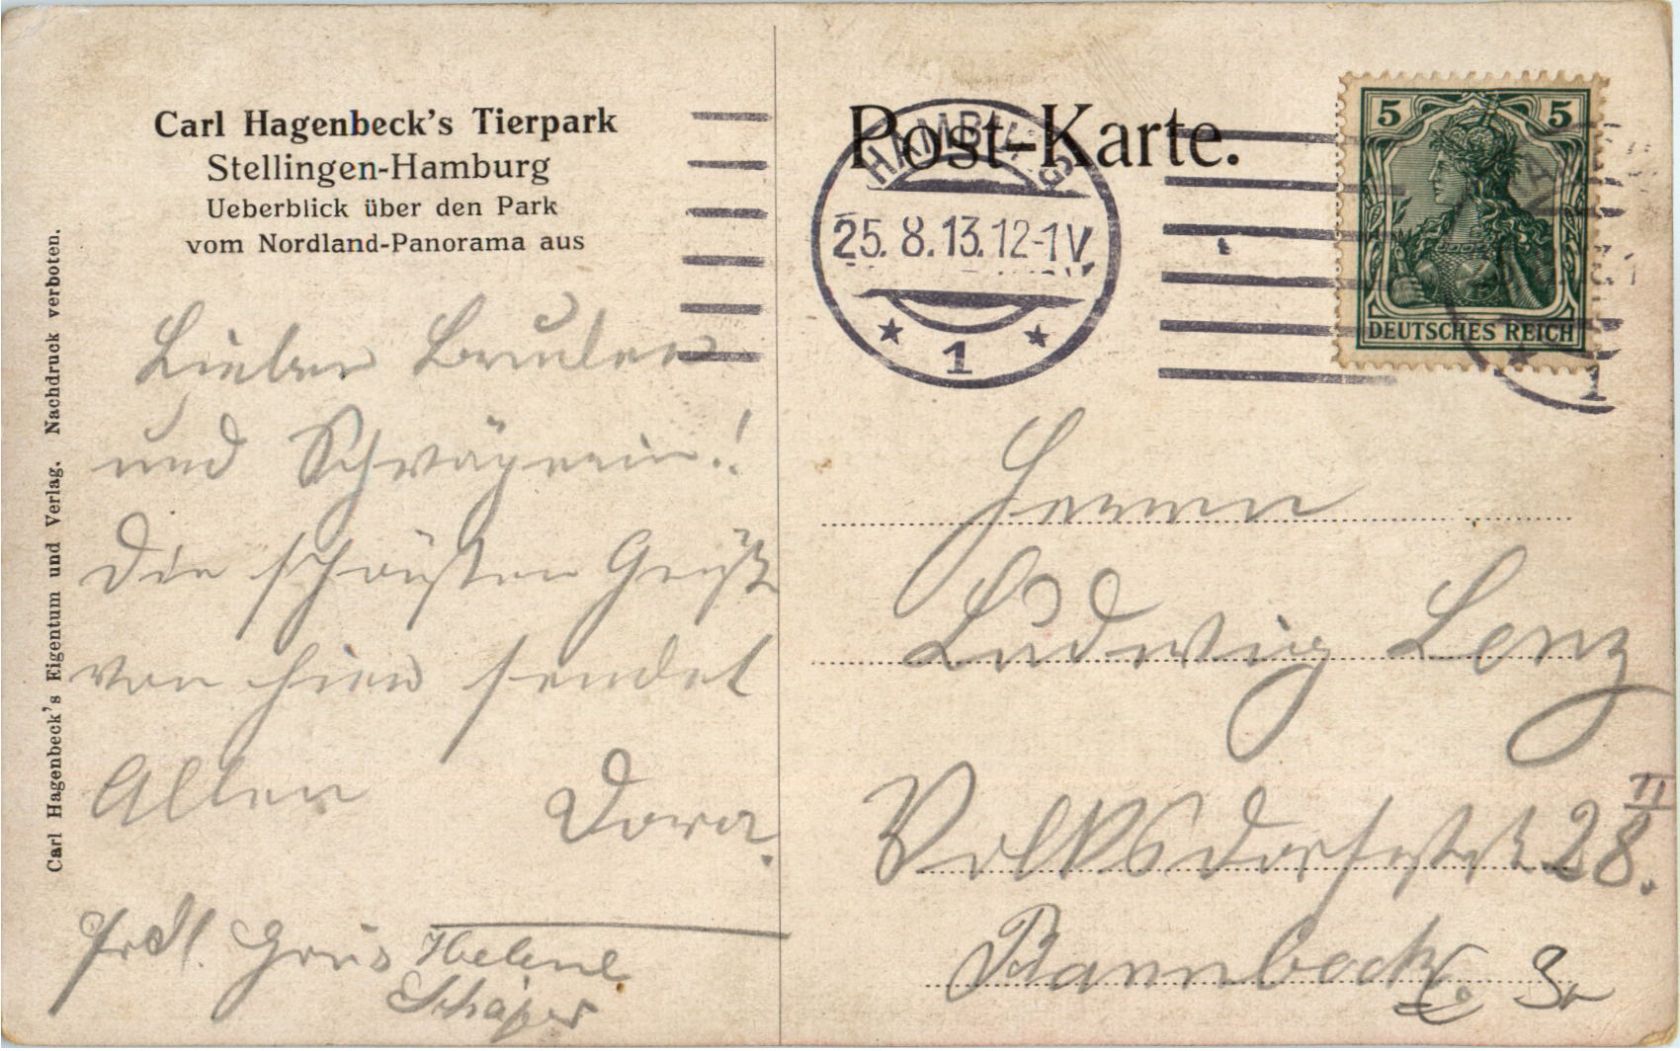 Carl Hagenbeck's Tierpark
Stellingen-Hamburg
Ueberblick über den Park
vom Nordland-Panorama aus
Carl Hagenbeck's Eigentum und Verlag. Nachdruck verboten.
Lieber Bruder
und Schwägerin!
Die schönsten Grüße
von hier sendet
Allen Dora.
Frdl. Grus Helene
Schäper
Post-Karte.
HAMBURG
25.8.13.12-1V.
1
5 5
DEUTSCHES REICH
1
Herrn
Ludwig Lenz
Volksdorferstr 28 II.
Barmbeck.